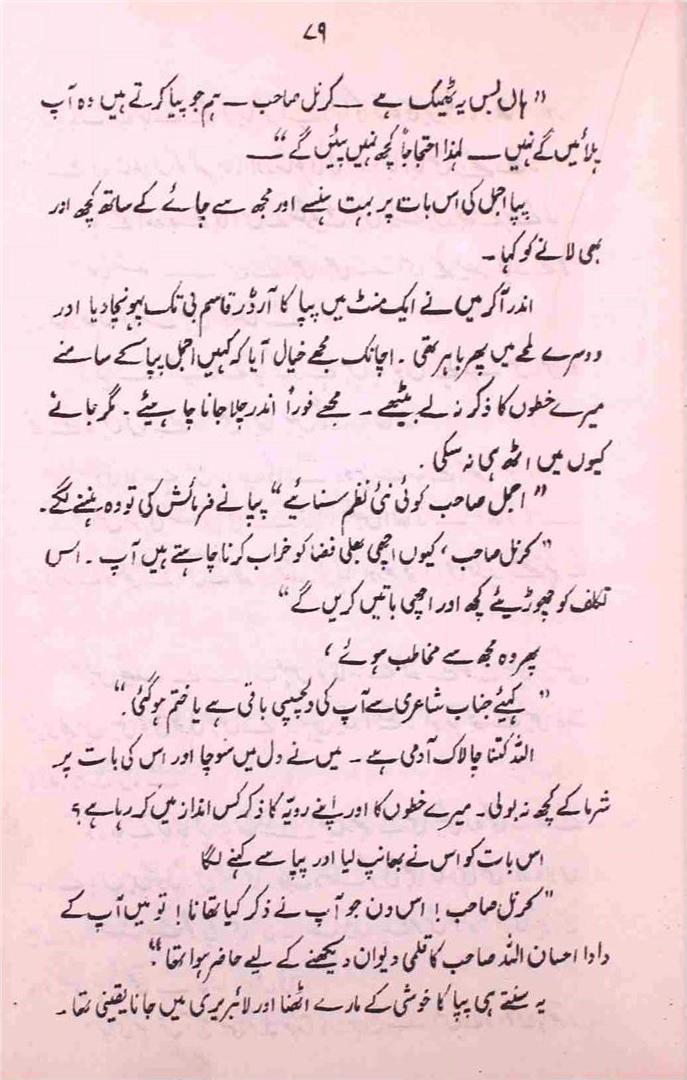 ۷۹
"ہاں بس یہ ٹھیک ہے — کرنل صاحب — ہم جو پیا کرتے ہیں وہ آپ
پلائیں گے نہیں — لہٰذا احتجاجاً کچھ نہیں پئیں گے" —
پپا اجمل کی اس بات پر بہت ہنسے اور مجھ سے چائے کے ساتھ کچھ اور
بھی لانے کو کہا ۔
اندر آکر میں نے ایک منٹ میں پپا کا آرڈر قاسم بی تک پہونچا دیا اور
دوسرے لمحے میں پھر باہر تھی ۔ اچانک مجھے خیال آیا کہ کہیں اجمل پپا کے سامنے
میرے خطوں کا ذکر نہ لے بیٹھے ۔ مجھے فوراً اندر چلا جانا چاہیئے ۔ مگر جانے
کیوں میں اٹھ ہی نہ سکی ۔
"اجمل صاحب کوئی نئی نظم سنائیے" پپا نے فرمائش کی تو وہ ہنسنے لگے ۔
"کرنل صاحب ، کیوں اچھی بھلی فضا کو خراب کرنا چاہتے ہیں آپ ۔ اس
تکلف کو چھوڑیئے کچھ اور اچھی باتیں کریں گے"
پھر وہ مجھ سے مخاطب ہوئے ،
"کہیئے جناب شاعری سے آپ کی دلچسپی باقی ہے یا ختم ہوگئی ۔"
اللہ کتنا چالاک آدمی ہے ۔ میں نے دل میں سوچا اور اس کی بات پر
شرما کے کچھ نہ بولی ۔ میرے خطوں کا اور اپنے رویہّ کا ذکر کس انداز میں کر رہا ہے ؟
اس بات کو اس نے بھانپ لیا اور پپا سے کہنے لگا
"کرنل صاحب ! اس دن جو آپ نے ذکر کیا تھا نا ! تو میں آپ کے
دادا احسان اللہ صاحب کا قلمی دیوان دیکھنے کے لیے حاضر ہوا تھا ۔"
یہ سنتے ہی پپا کا خوشی کے مارے اٹھنا اور لائبریری میں جانا یقینی تھا ۔